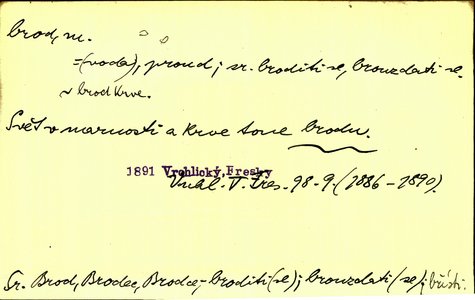 brod, m.
=(voda), proud; sr. broditi se, brouzdati se.
~ brod krve.
Svět v marnosti a krve tone brodu.
1891 Vrchlický, Fresky
Vrchl. V. Fres. 98-9. (1886-1890).
Sr. Brod, Brodec, Brodce,- broditi (se); brouzdati (se); břísti.